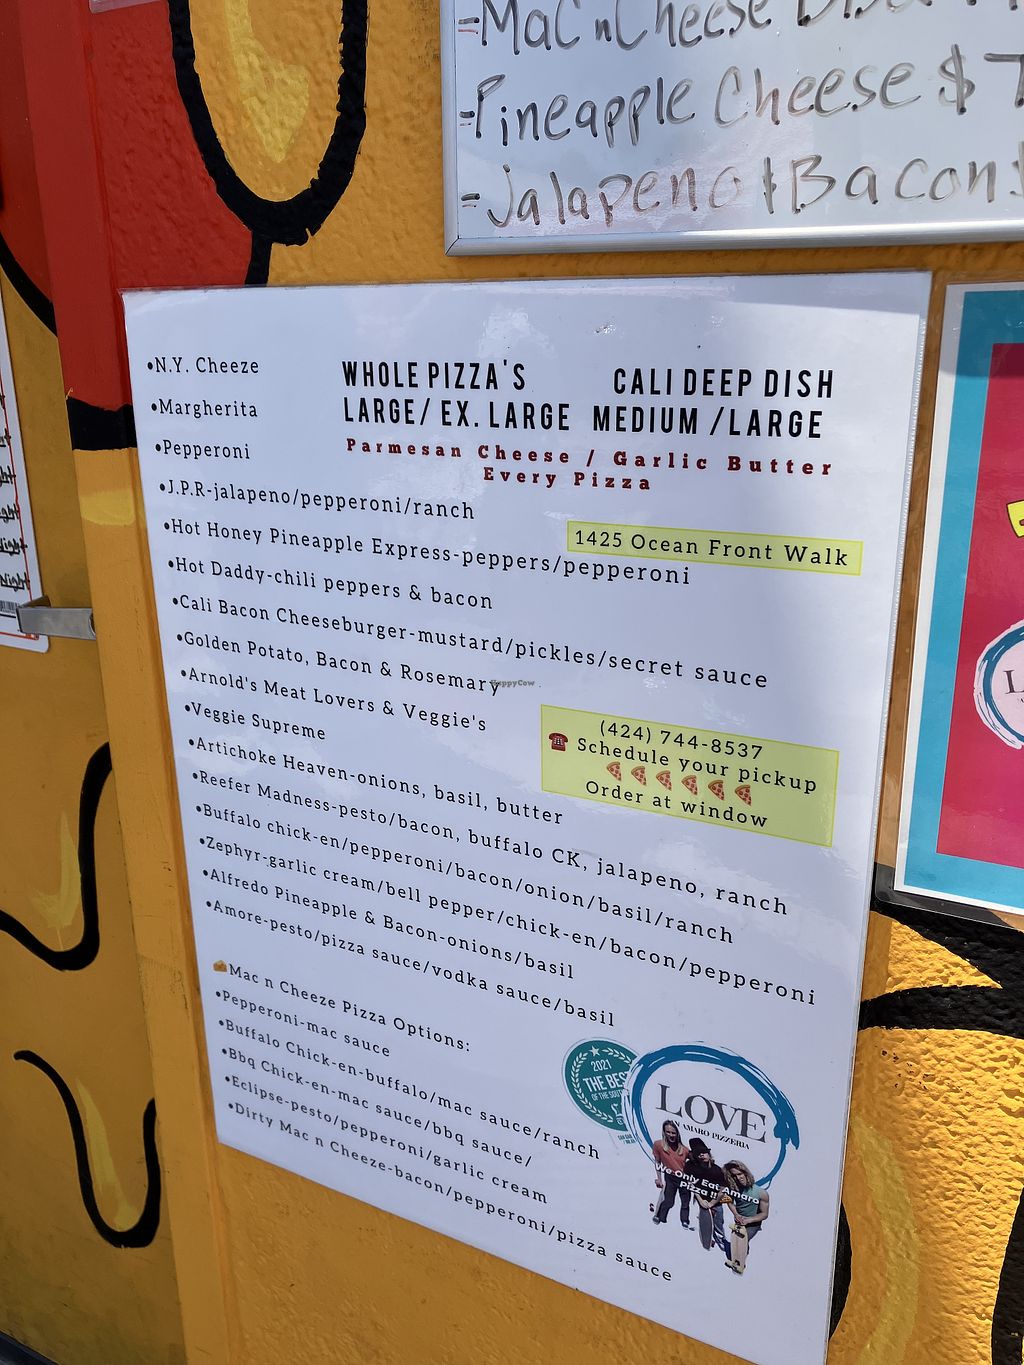 -Mac n Cheese
-Pineapple Cheese $
-Jalapeno & Bacon
WHOLE PIZZA'S
LARGE/ EX. LARGE
CALI DEEP DISH
MEDIUM /LARGE
Parmesan Cheese / Garlic Butter
Every Pizza
•N.Y. Cheeze
•Margherita
•Pepperoni
•J.P.R-jalapeno/pepperoni/ranch
•Hot Honey Pineapple Express-peppers/pepperoni
1425 Ocean Front Walk
•Hot Daddy-chili peppers & bacon
•Cali Bacon Cheeseburger-mustard/pickles/secret sauce
•Golden Potato, Bacon & Rosemary
HappyCow
•Arnold's Meat Lovers & Veggie's
•Veggie Supreme
(424) 744-8537
☎ Schedule your pickup
🍕🍕🍕🍕🍕🍕
Order at window
•Artichoke Heaven-onions, basil, butter
•Reefer Madness-pesto/bacon, buffalo CK, jalapeno, ranch
•Buffalo chick-en/pepperoni/bacon/onion/basil/ranch
•Zephyr-garlic cream/bell pepper/chick-en/bacon/pepperoni
•Alfredo Pineapple & Bacon-onions/basil
•Amore-pesto/pizza sauce/vodka sauce/basil
🧀Mac n Cheeze Pizza Options:
•Pepperoni-mac sauce
•Buffalo Chick-en-buffalo/mac sauce/ranch
•Bbq Chick-en-mac sauce/bbq sauce/
•Eclipse-pesto/pepperoni/garlic cream
•Dirty Mac n Cheeze-bacon/pepperoni/pizza sauce
2021
THE BEST
OF THE
LOVE
AMARO PIZZERIA
We Only Eat Amaro
Pizza !!